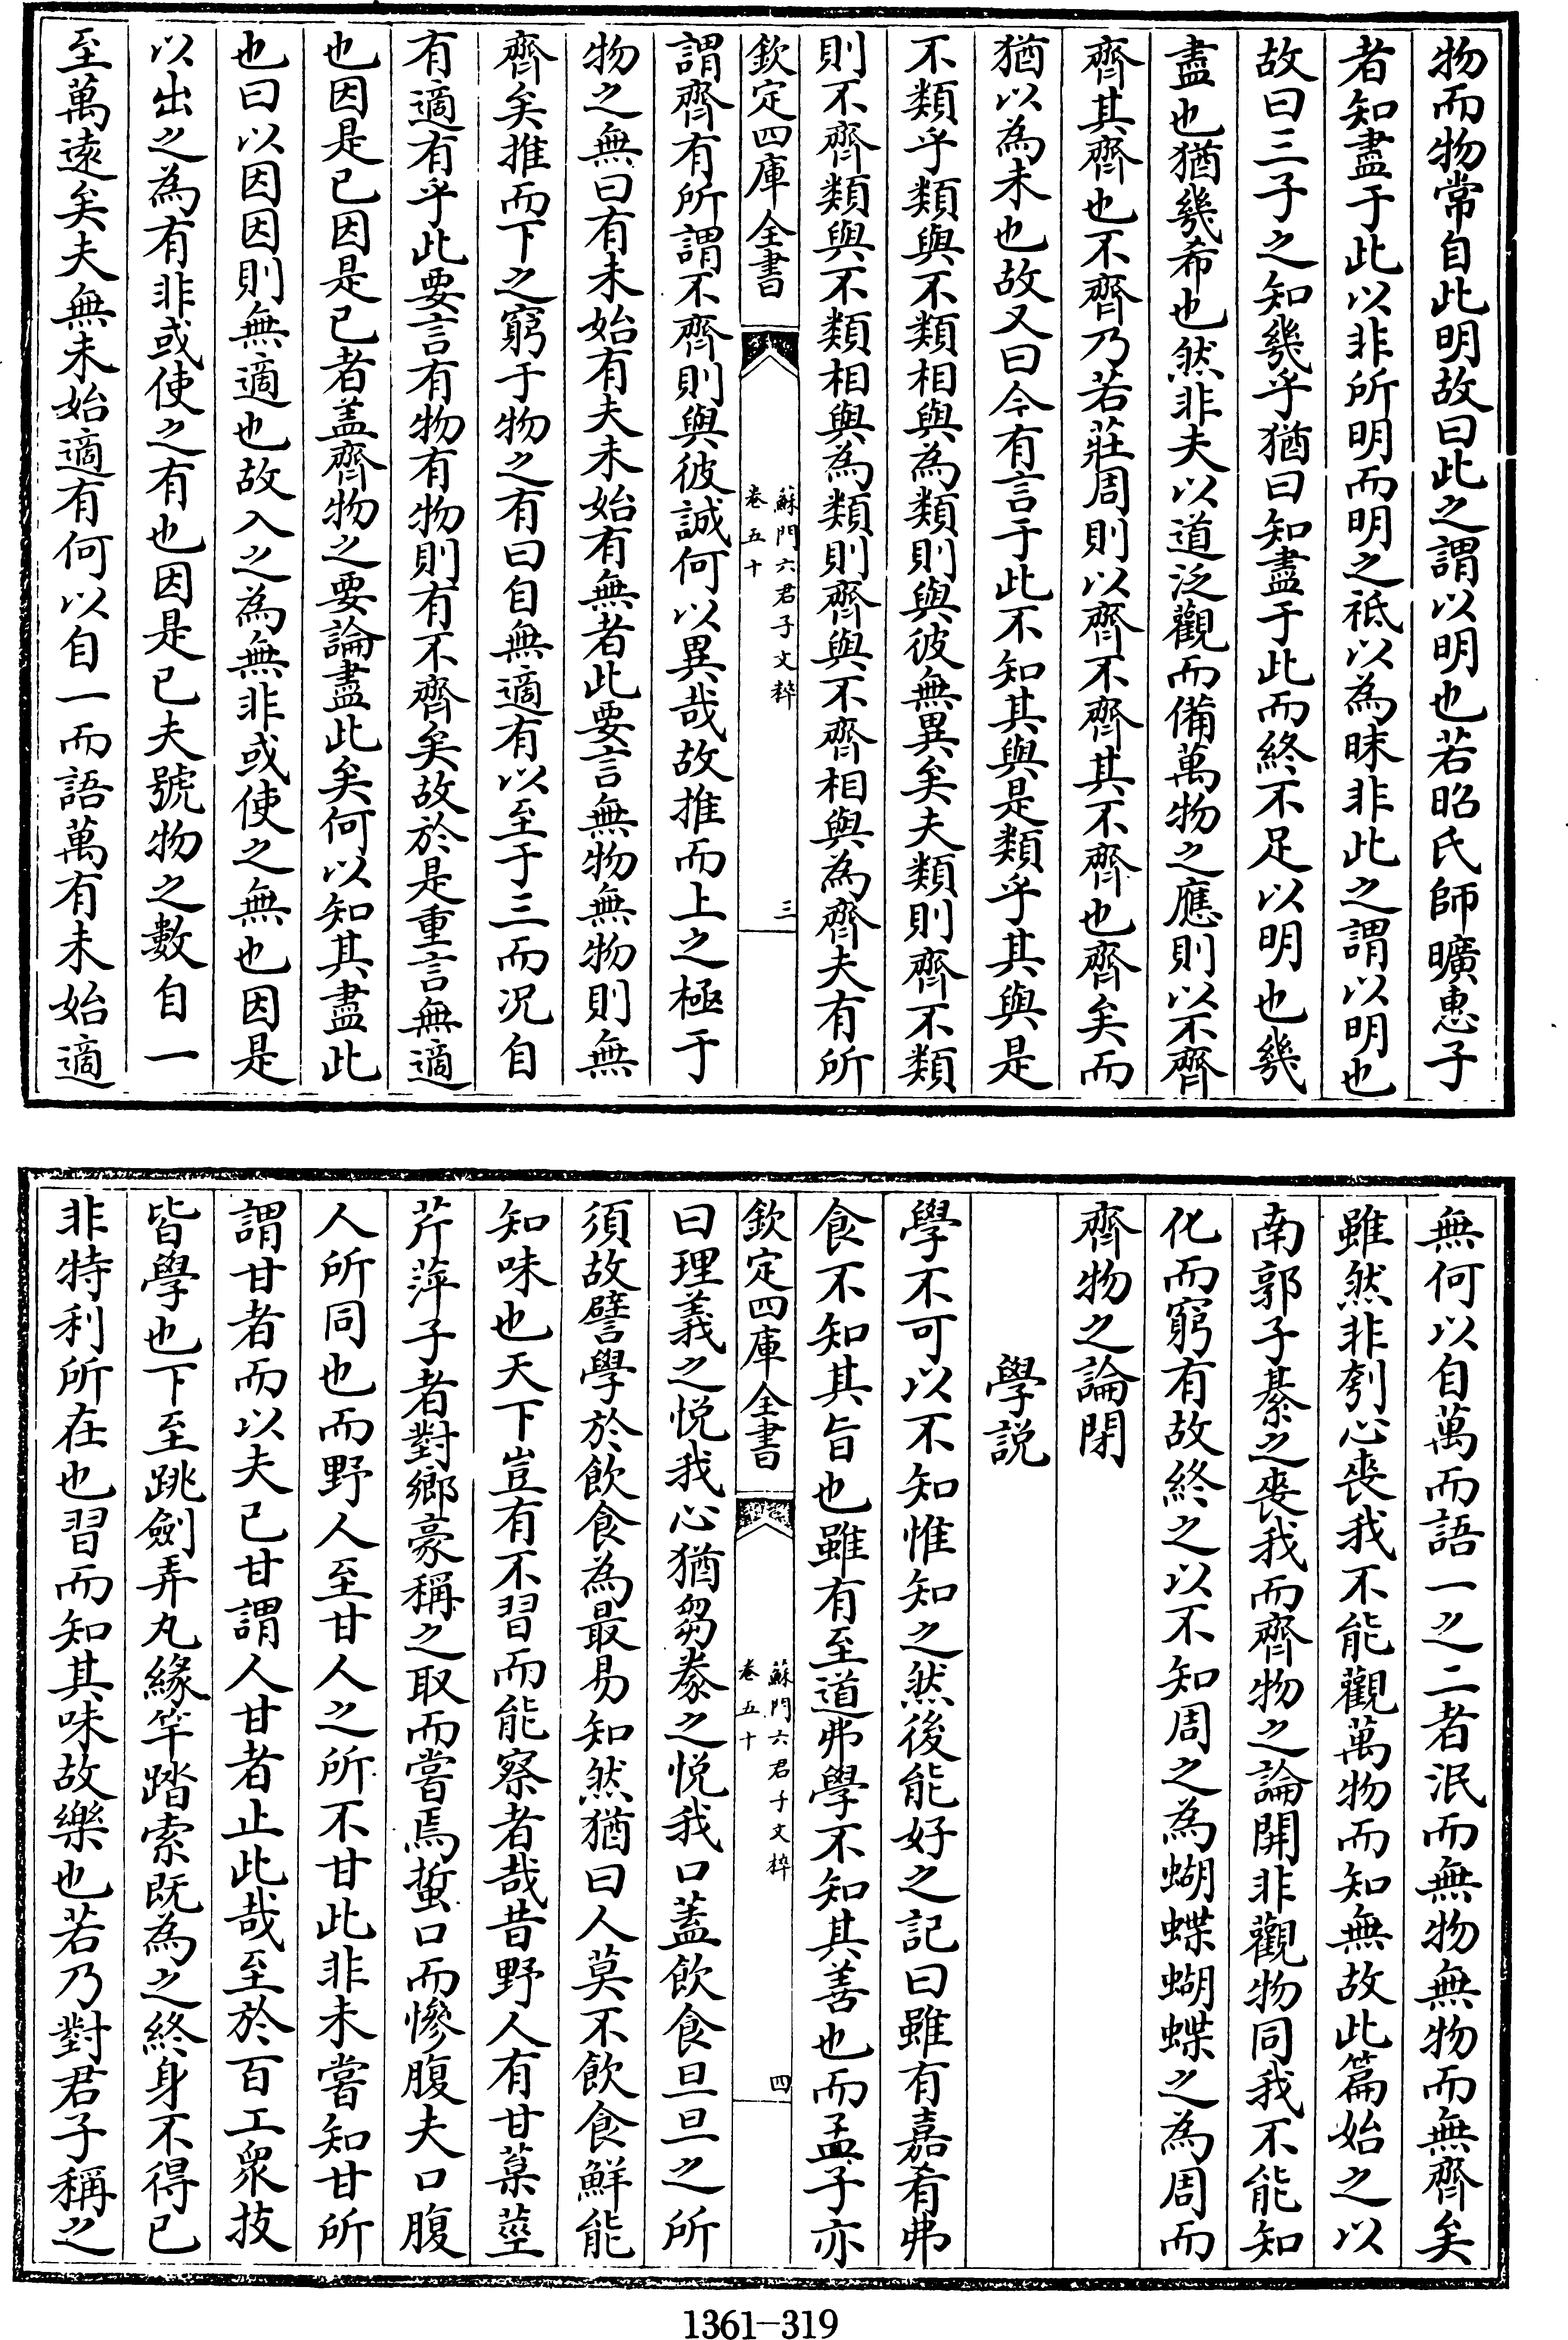 物而物常自此明故曰此之謂以明也若昭氏師曠惠子
者知盡于此以非所明而明之祗以為昧非此之謂以明也
故曰三子之知幾乎猶曰知盡于此而終不足以明也幾
盡也猶幾希也然非夫以道泛觀而備萬物之應則以不齊
齊其齊也不齊乃若莊周則以齊不齊其不齊也齊矣而
猶以為未也故又曰今有言于此不知其與是類乎其與是
不類乎類與不類相與為類則與彼無異矣夫類則齊不類
則不齊類與不類相與為類則齊與不齊相與為齊夫有所
欽定四庫全書
蘇門六君子文粹
卷五十
三
謂齊有所謂不齊則與彼誠何以異哉故推而上之極于
物之無曰有未始有夫未始有無者此要言無物無物則無
齊矣推而下之窮于物之有曰自無適有以至于三而况自
有適有乎此要言有物有物則有不齊矣故於是重言無適
也因是已因是已者盖齊物之要論盡此矣何以知其盡此
也曰以因因則無適也故入之為無非或使之無也因是
以出之為有非或使之有也因是已夫號物之數自一
至萬逺矣夫無未始適有何以自一而語萬有未始適
無何以自萬而語一之二者泯而無物無物而無齊矣
雖然非刳心喪我不能觀萬物而知無故此篇始之以
南郭子綦之喪我而齊物之論開非觀物同我不能知
化而窮有故終之以不知周之為蝴蝶蝴蝶之為周而
齊物之論閉
學説
學不可以不知惟知之然後能好之記曰雖有嘉肴弗
食不知其旨也雖有至道弗學不知其善也而孟子亦
欽定四庫全書
蘇門六君子文粹
卷五十
四
曰理義之悦我心猶芻豢之悦我口蓋飲食旦旦之所
須故譬學於飲食為最易知然猶曰人莫不飲食鮮能
知味也天下豈有不習而能察者哉昔野人有甘菒莖
芹萍子者對鄉豪稱之取而嘗焉蜇口而慘腹夫口腹
人所同也而野人至甘人之所不甘此非未嘗知甘所
謂甘者而以夫已甘謂人甘者止此哉至於百工衆技
皆學也下至跳劍弄丸緣竿踏索既為之終身不得已
非特利所在也習而知其味故樂也若乃對君子稱之
1361-319